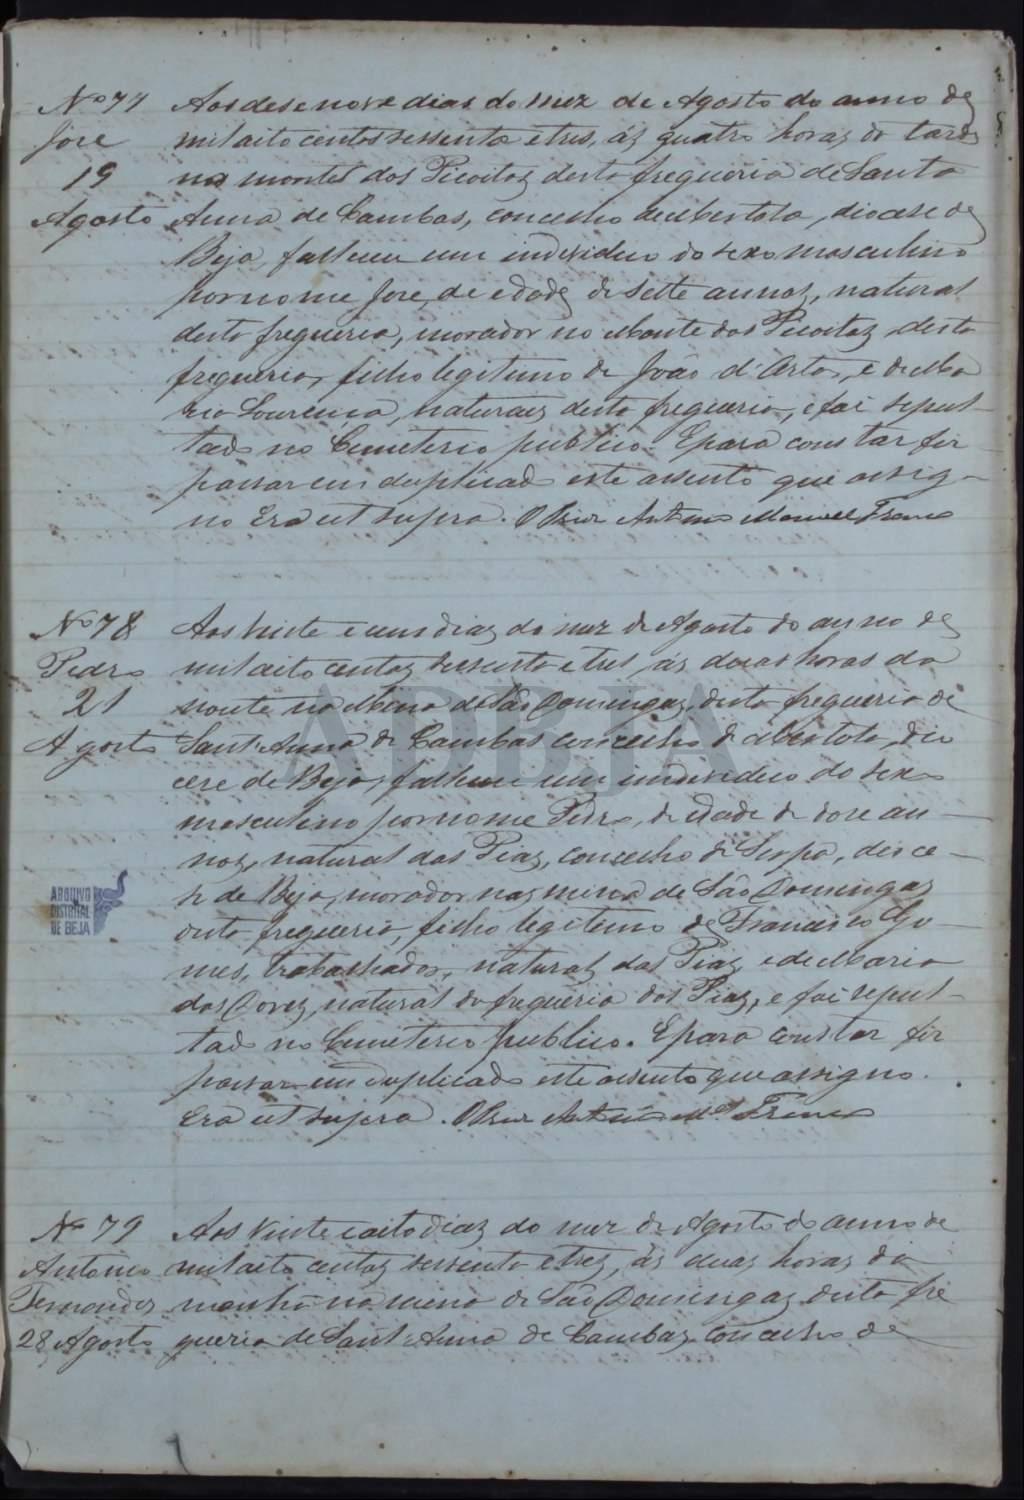 Nº 77
José
19
Agosto
Aos desenove dias do mez de Agosto do anno de
mil oito centos sessenta e tres, ás quatro horas da tarde
no monte dos Picoitos desta freguesia de Santa
Anna de Cambas, concelho de Mertola, diocese de
Beja, falleceu um individuo do sexo masculino
por nome José, de edade de sette annos, natural
desta freguesia, morador no Monte dos Picoitos desta
freguesia, filho legitimo de João d'Arta, e de Ma
ria Lourença, naturaes desta freguesia, e foi sepul-
tado no Cemeterio publico. E para constar fiz
passar em duplicado este assento que assig-
no Era ut supra. O Prior Antonio Manuel Franco
Nº 78
Pedro
21
Agosto
Aos vinte e um dias do mez de Agosto do anno de
mil oito centos sessenta e tres, ás duas horas da
noute na Mina de São Domingos, desta freguesia de
Sant'Anna de Cambas concelho de Mertola, dio
cese de Beja, falleceu um individuo do sexo
masculino por nome Pedro, de edade de dose an-
nos, natural das Pias, concelho de Serpa, dioce-
se de Beja, morador nas mina de São Domingos
desta freguesia, filho legitimo de Francisco Go-
mes, trabalhador, natural das Pias, e de Maria
das Dores, natural da freguesia das Pias, e foi sepul-
tado no Cemeterio publico. E para constar fiz
passar em duplicado este assento que assigno.
Era ut supra. O Prior Antonio Mel Franco
Nº 79
Antonio
Fernandes
28 Agosto
Aos vinte e oito dias do mez de Agosto do anno de
mil oito centos sessenta e tres, ás duas horas da
manhã na mina de São Domingos desta fre
guesia de Sant'Anna de Cambas, concelho de
ADBJA
ARQUIVO
DISTRITAL
DE BEJA